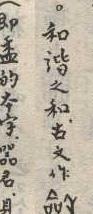 。和谐之和,古文作龢
(即盉的本字,器名,具